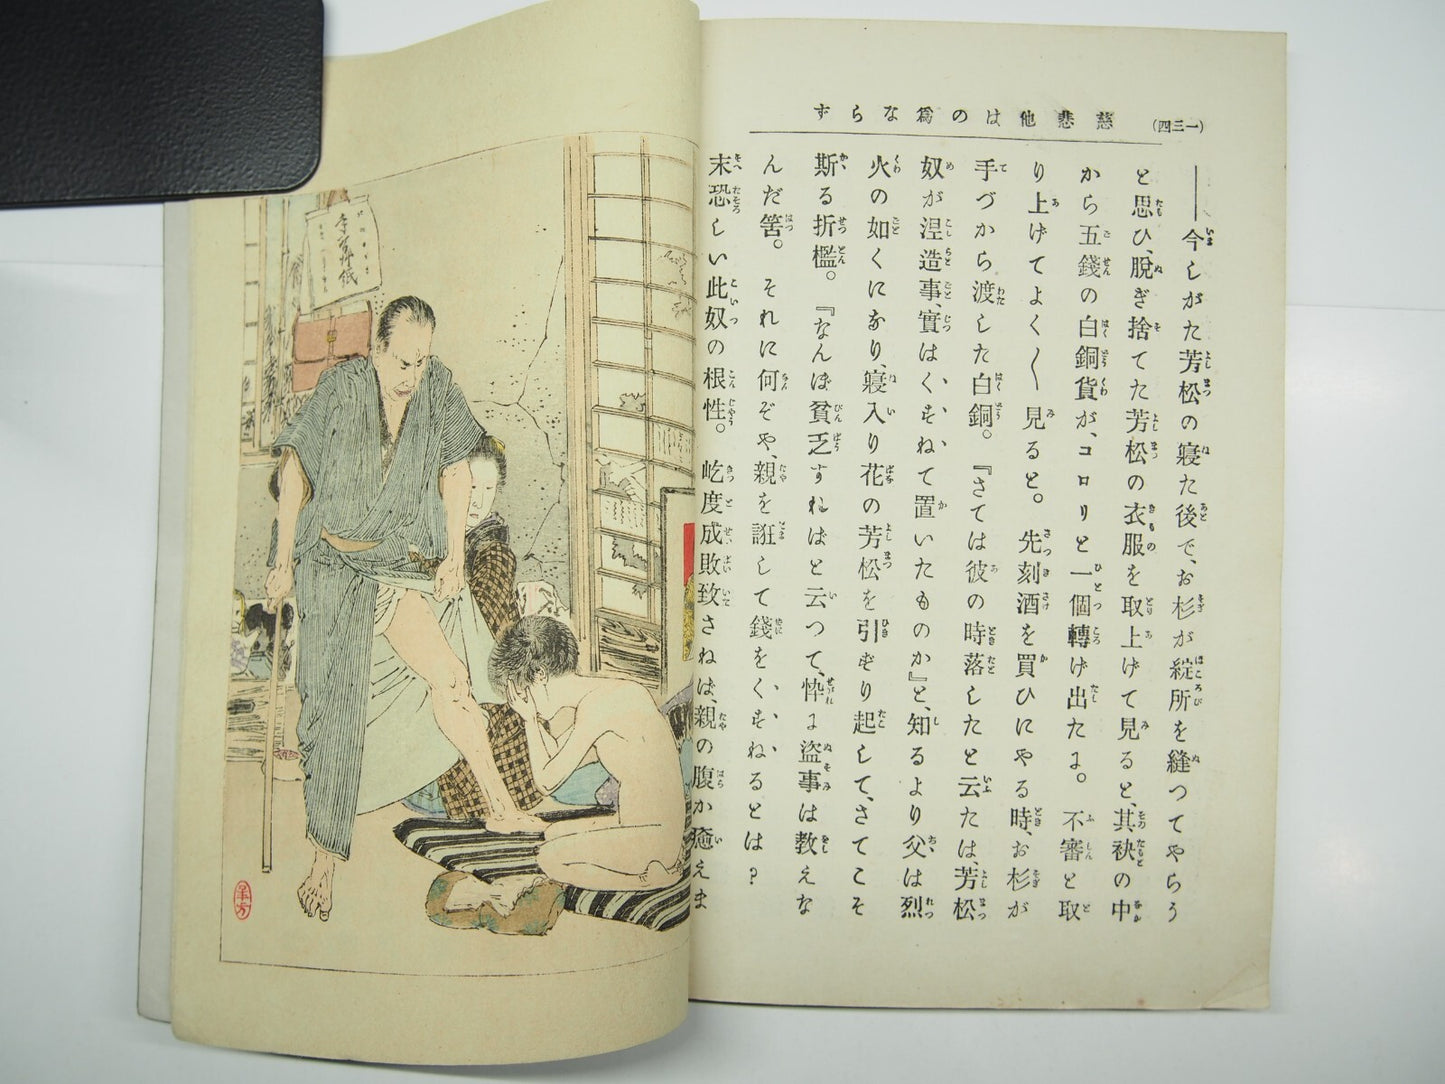 慈悲他はの爲ならず
（一三四）
――今しがた芳松の寢た後で、お杉が綻所を縫つてやらう
と思ひ、脱ぎ捨てた芳松の衣服を取上げて見ると、其袂の中
から五錢の白銅貨が、コロリと一個轉げ出たよ。不審と取
り上げてよく〱見ると。先刻酒を買ひにやる時、お杉が
手づから渡した白銅。『さては彼の時落したと云たは、芳松
奴が涅造事、實はくすねて置いたものか』と、知るより父は烈
火の如くになり、寢入り花の芳松を引ずり起して、さてこそ
斯る折檻。『なんぼ貧乏すればと云つて、悴に盜事は教えな
んだ筈。それに何ぞや、親を誑して錢をくすねるとは？
末恐しい此奴の根性。屹度成敗致さねば、親の腹か癒えま